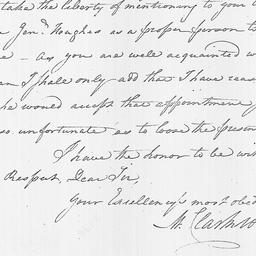 take the liberty of mentioning to your
Gen.l Douglas as a proper person to
e - as you are well acquainted w
I shall only add that I have reas
he would accept that appointment
so unfortunate as to loose the presen
I have the honor to be wit
Respect, Dear Sir,
Your Excellency's most obed
M. Clarkso